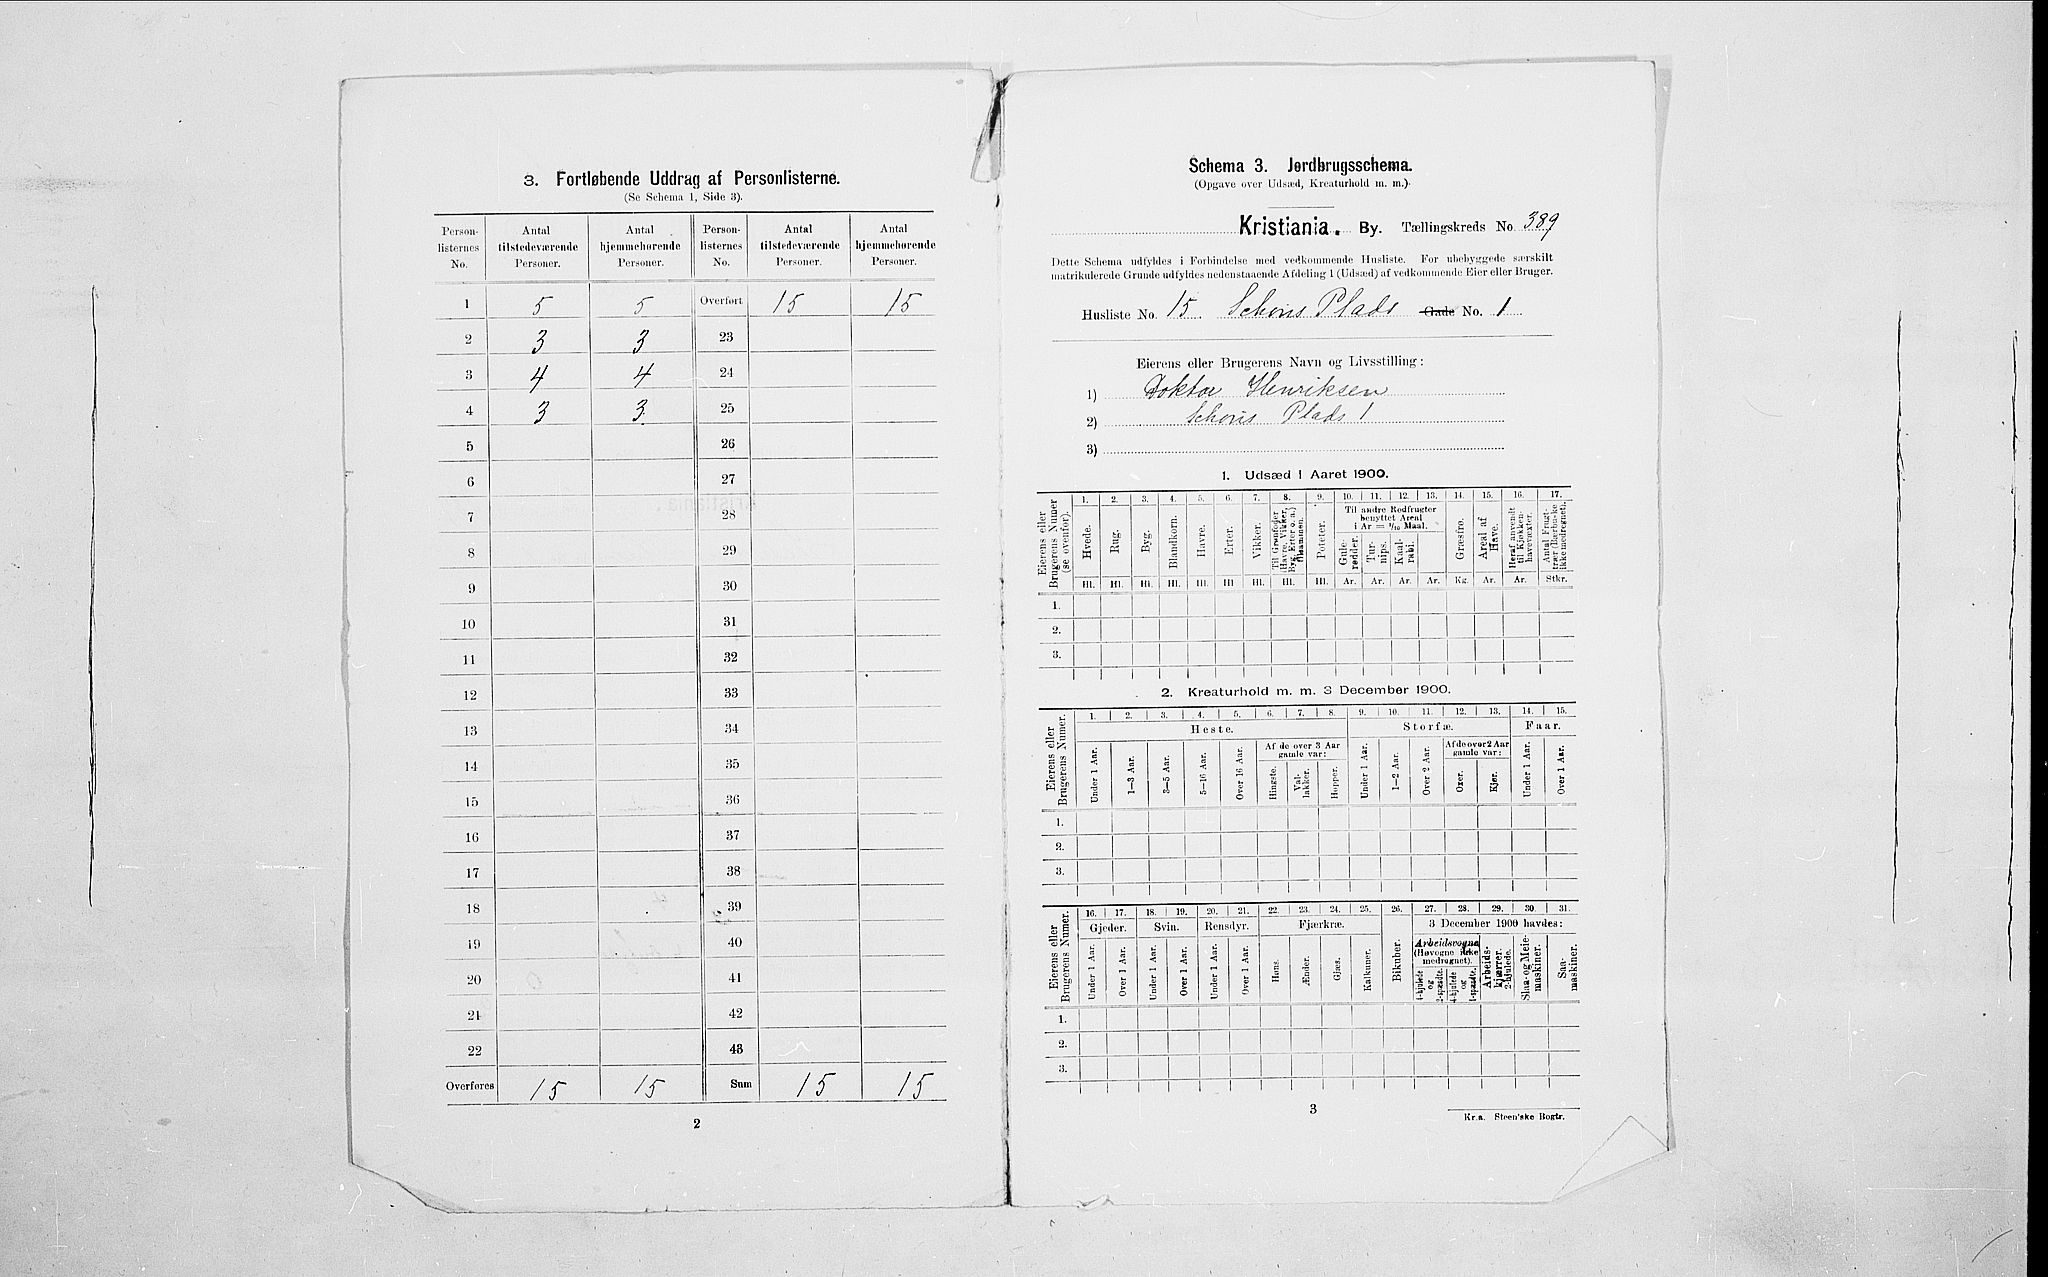 3. Fortløbende Uddrag af Personlisterne.
(Se Schema 1, Side 3).
Person-listernes No. Antal tilstedeværende Personer. Antal hjemmehørende Personer. Person-listernes No. Antal tilstedeværende Personer. Antal hjemmehørende Personer.
1 5 5 Overført 15 15
2 3 3 23
3 4 4 24
4 3 3 25
5 26
6 27
7 28
8 29
9 30
10 31
11 32
12 33
13 34
14 35
15 36
16 37
17 38
18 39
19 40
20 41
21 42
22 43
Overføres 15 15 Sum 15 15
2
Schema 3. Jordbrugsschema.
(Opgave over Udsæd, Kreaturhold m. m.).
Kristiania. By. Tællingskreds No. 389
Dette Schema udfyldes i Forbindelse med vedkommende Husliste. For ubebyggede særskilt
matrikulerede Grunde udfyldes nedenstaaende Afdeling 1 (Udsæd) af vedkommende Eier eller Bruger.
Husliste No. 15. Schous Plads Gade No. 1
Eierens eller Brugerens Navn og Livsstilling:
1) Doktor Henriksen
2) Schous Plads 1
3)
1. Udsæd i Aaret 1900.
Eierens eller Brugerens Numer (se ovenfor).
1. 2. 3. 4. 5. 6. 7. 8. 9. 10. 11. 12. 13. 14. 15. 16. 17.
Hvede. Rug. Byg. Blandkorn. Havre. Erter. Vikker. Til Grønfoder (Havre, Vikker, Byg, Erter o. a.) tilsammen. Poteter.
Til andre Rodfrugter benyttet Areal i Ar = 1/10 Maal.
Gule-rødder. Tur-nips. Kaal-rabi. Græsfrø. Areal af Have. Heraf anvendt til Kjøkken-havevæxter. Antal Frugt-trær (Bærbuske ikke medregnet).
Hl. Hl. Hl. Hl. Hl. Hl. Hl. Hl. Hl. Ar. Ar. Ar. Ar. Kg. Ar. Ar. Stkr.
1.
2.
3.
2. Kreaturhold m. m. 3 December 1900.
Eierens eller Brugerens Numer.
1. 2. 3. 4. 5. 6. 7. 8. 9. 10. 11. 12. 13. 14. 15.
Heste. Storfæ. Faar.
Af de over 3 Aar gamle var: Af de over 2 Aar gamle var:
Under 1 Aar. 1—3 Aar. 3—5 Aar. 5—16 Aar. Over 16 Aar. Hingste. Val-lakker. Hopper. Under 1 Aar. 1—2 Aar. Over 2 Aar. Oxer. Kjør. Under 1 Aar. Over 1 Aar.
1.
2.
3.
Eierens eller Brugerens Numer.
16. 17. 18. 19. 20. 21. 22. 23. 24. 25. 26. 27. 28. 29. 30. 31.
Gjeder. Svin. Rensdyr. Fjærkræ. 3 December 1900 havdes:
Arbeidsvogne (Høvogne ikke medregnet).
Under 1 Aar. Over 1 Aar. Under 1 Aar. Over 1 Aar. Under 1 Aar. Over 1 Aar. Høns. Ænder. Gjæs. Kalkuner. Bikuber. 4-hjulede og 2-spændte. 4-hjulede og 1-spændte. Arbeids-kjærrer, 2-hjulede. Slaa- og Meie-maskiner. Saa-maskiner.
1.
2.
3.
3
Kr.a. Steen'ske Bogtr.